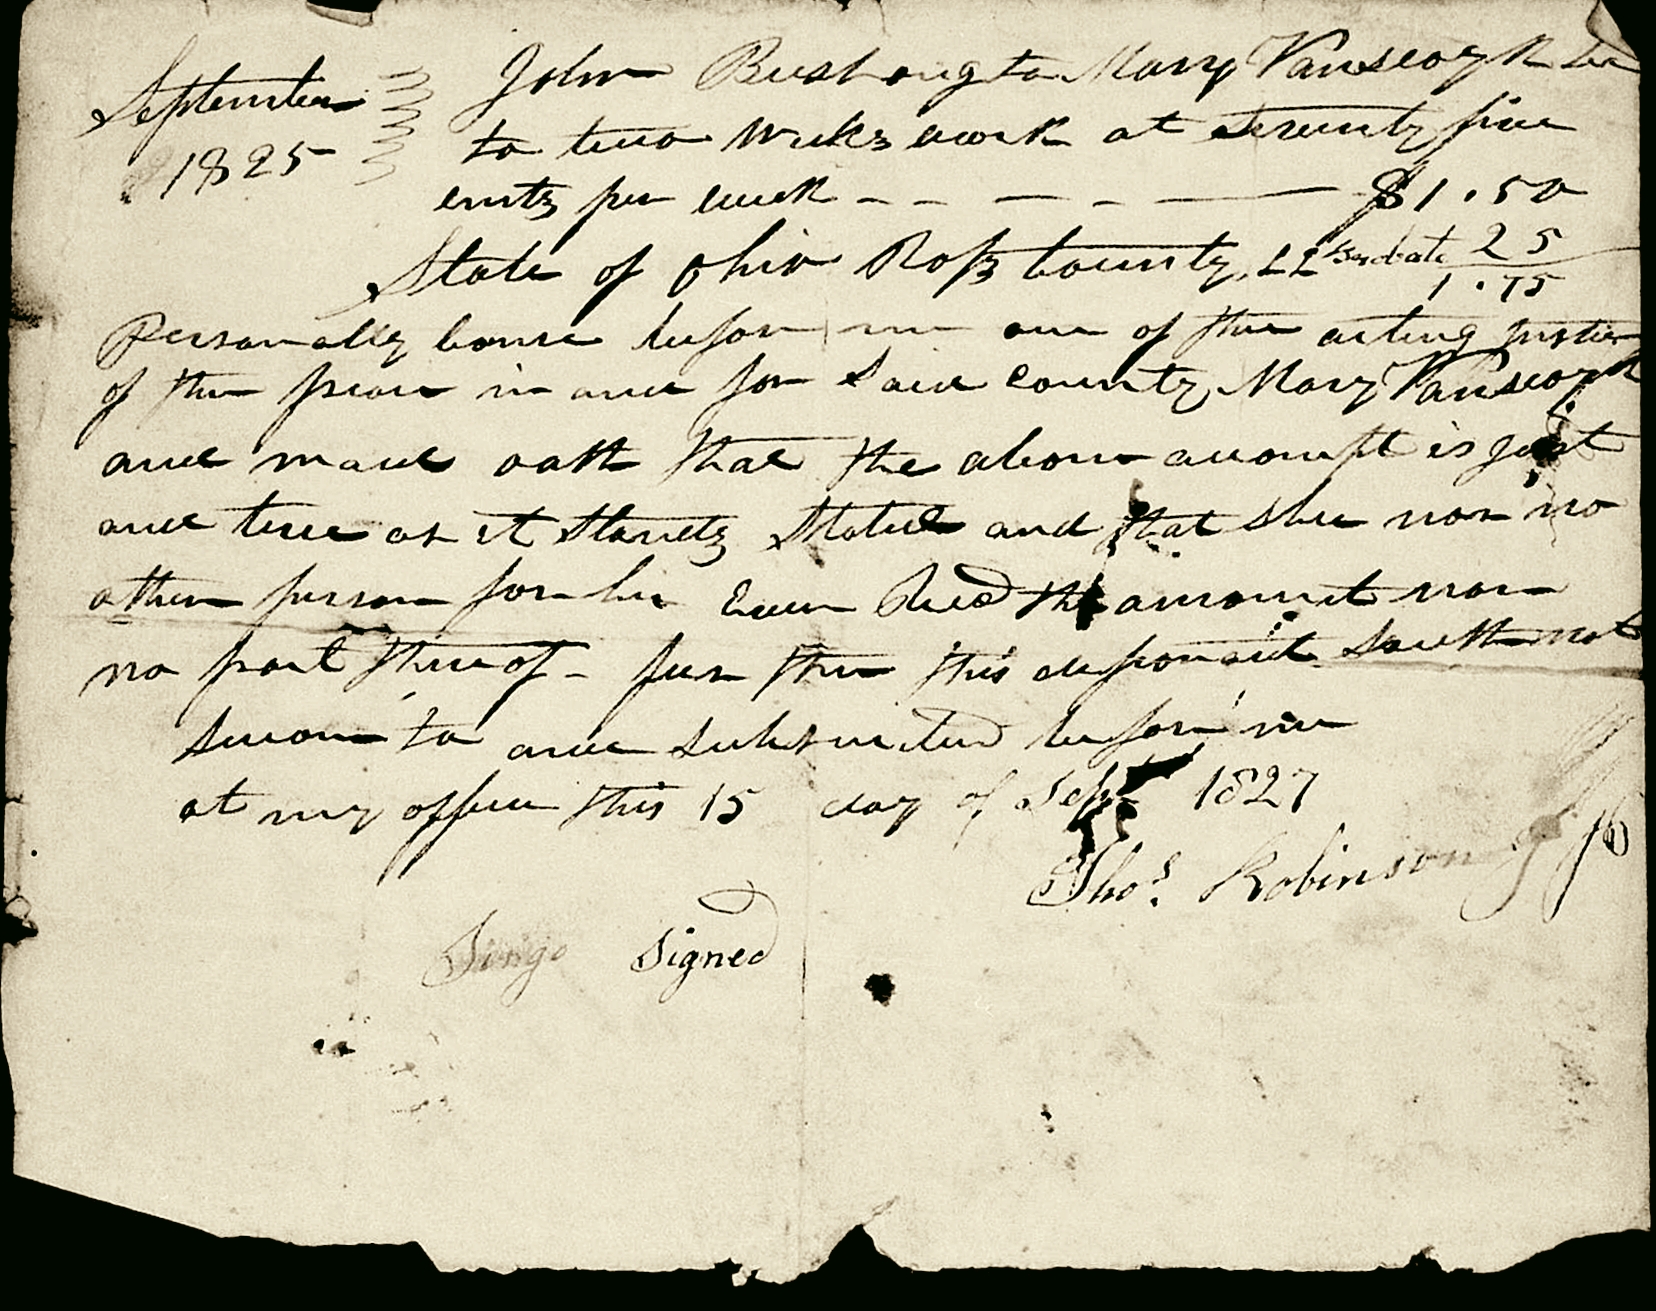 September John Bushong to Mary Vanscoyk Dr
1825 to two weeks work at seventy five
cents per week - - - - - $1.50
State of Ohio Ross County, 25
1.75
Personally Came before me one of the acting Justices
of the peace in and for Said County Mary Vanscoyk
and made oath that the above accompt is just
and true as it Stands Stated and that She nor no
other person for her Ever Recd the amount nor
no part thereof - further this deponent Saith not
Sworn to and subscribed before me
at my office this 15 day of Sept 1827
Thos. Robinson J P
Singd Signed